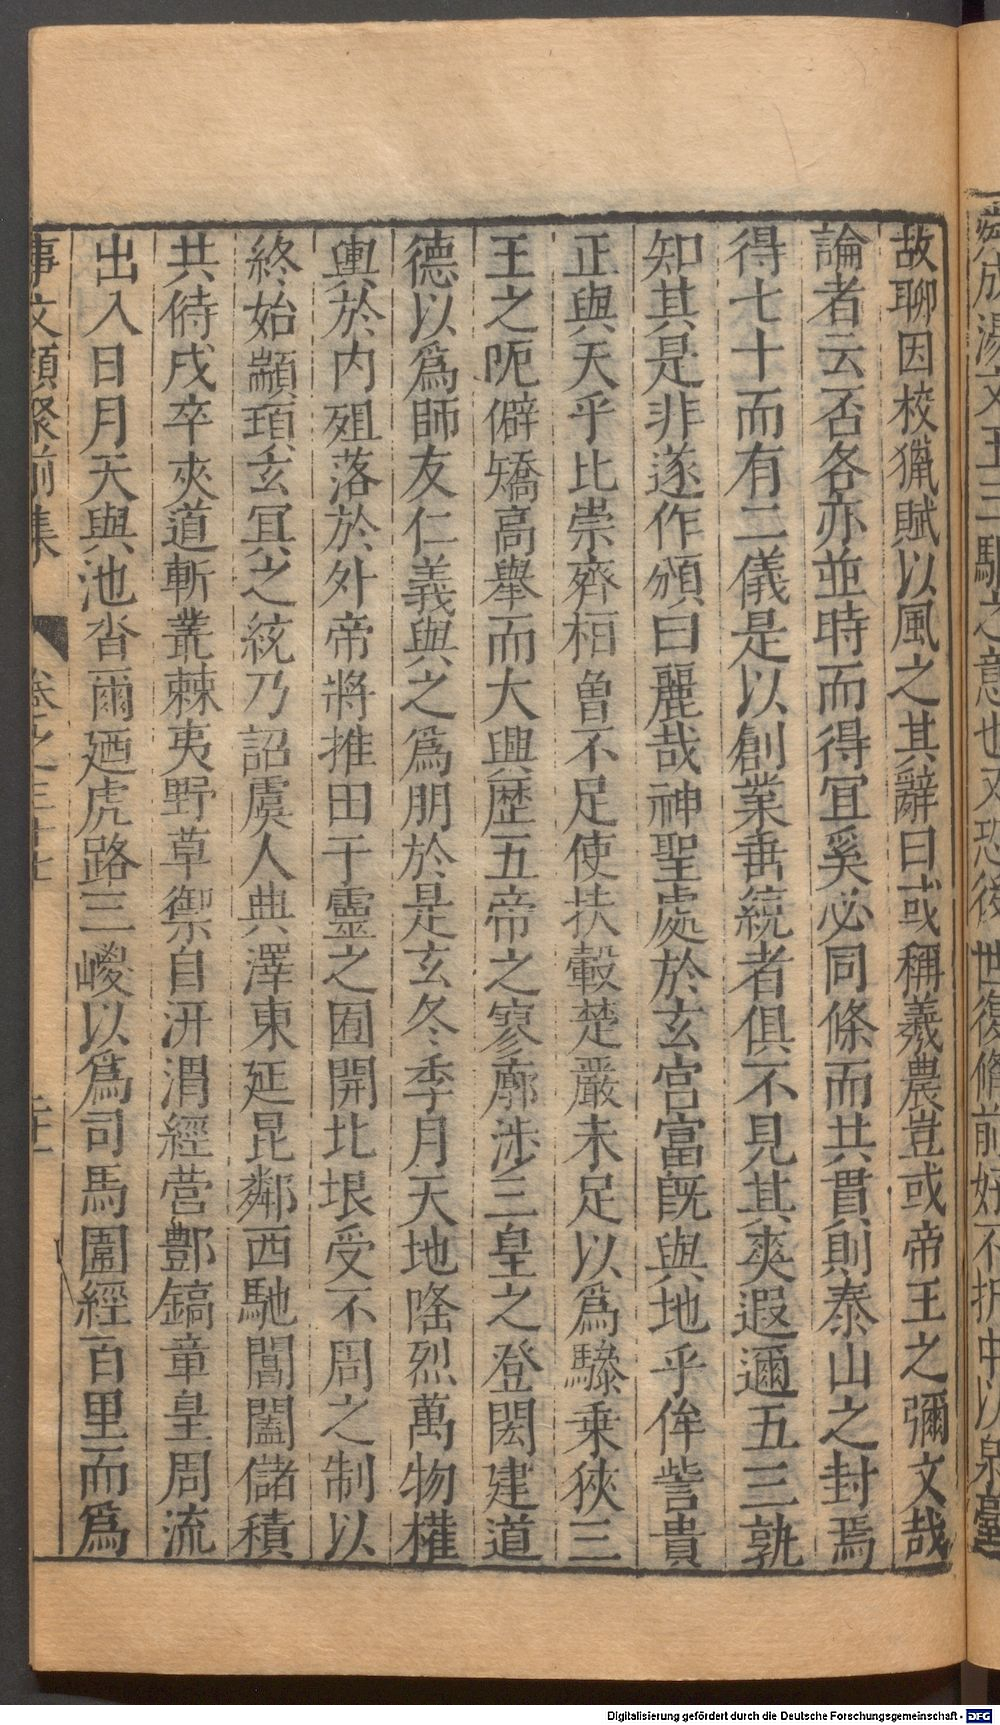 故聊因校獵賦以風之其辭曰或稱羲農豈或帝王之彌文哉
論者云否各亦並時而得宜奚必同條而共貫則泰山之封焉
得七十而有二儀是以創業垂統者俱不見其爽遐邇五三孰
知其是非遂作頌曰麗哉神聖處於玄宮富既與地乎侔訾貴
正與天乎比崇齊桓魯不足使扶轂楚嚴未足以為驂乗狹三
王之阨僻矯高舉而大興歷五帝之寥廓涉三皇之登閎建道
德以為師友仁義與之為朋於是玄冬季月天地隆烈萬物權
輿於内殂落於外帝將推田于靈之囿開北垠受不周之制以
終始顓頊玄冥之統乃詔虞人典澤東延昆鄰西馳閶闔儲積
共偫戍卒夾道斬叢棘夷野草禦自汧渭經營酆鎬章皇周流
出入日月天與池沓爾廼虎路三嵕以為司馬圍經百里而為
事文類聚前集 卷之三十七
Digitalisierung gefördert durch die Deutsche Forschungsgemeinschaft - DFG